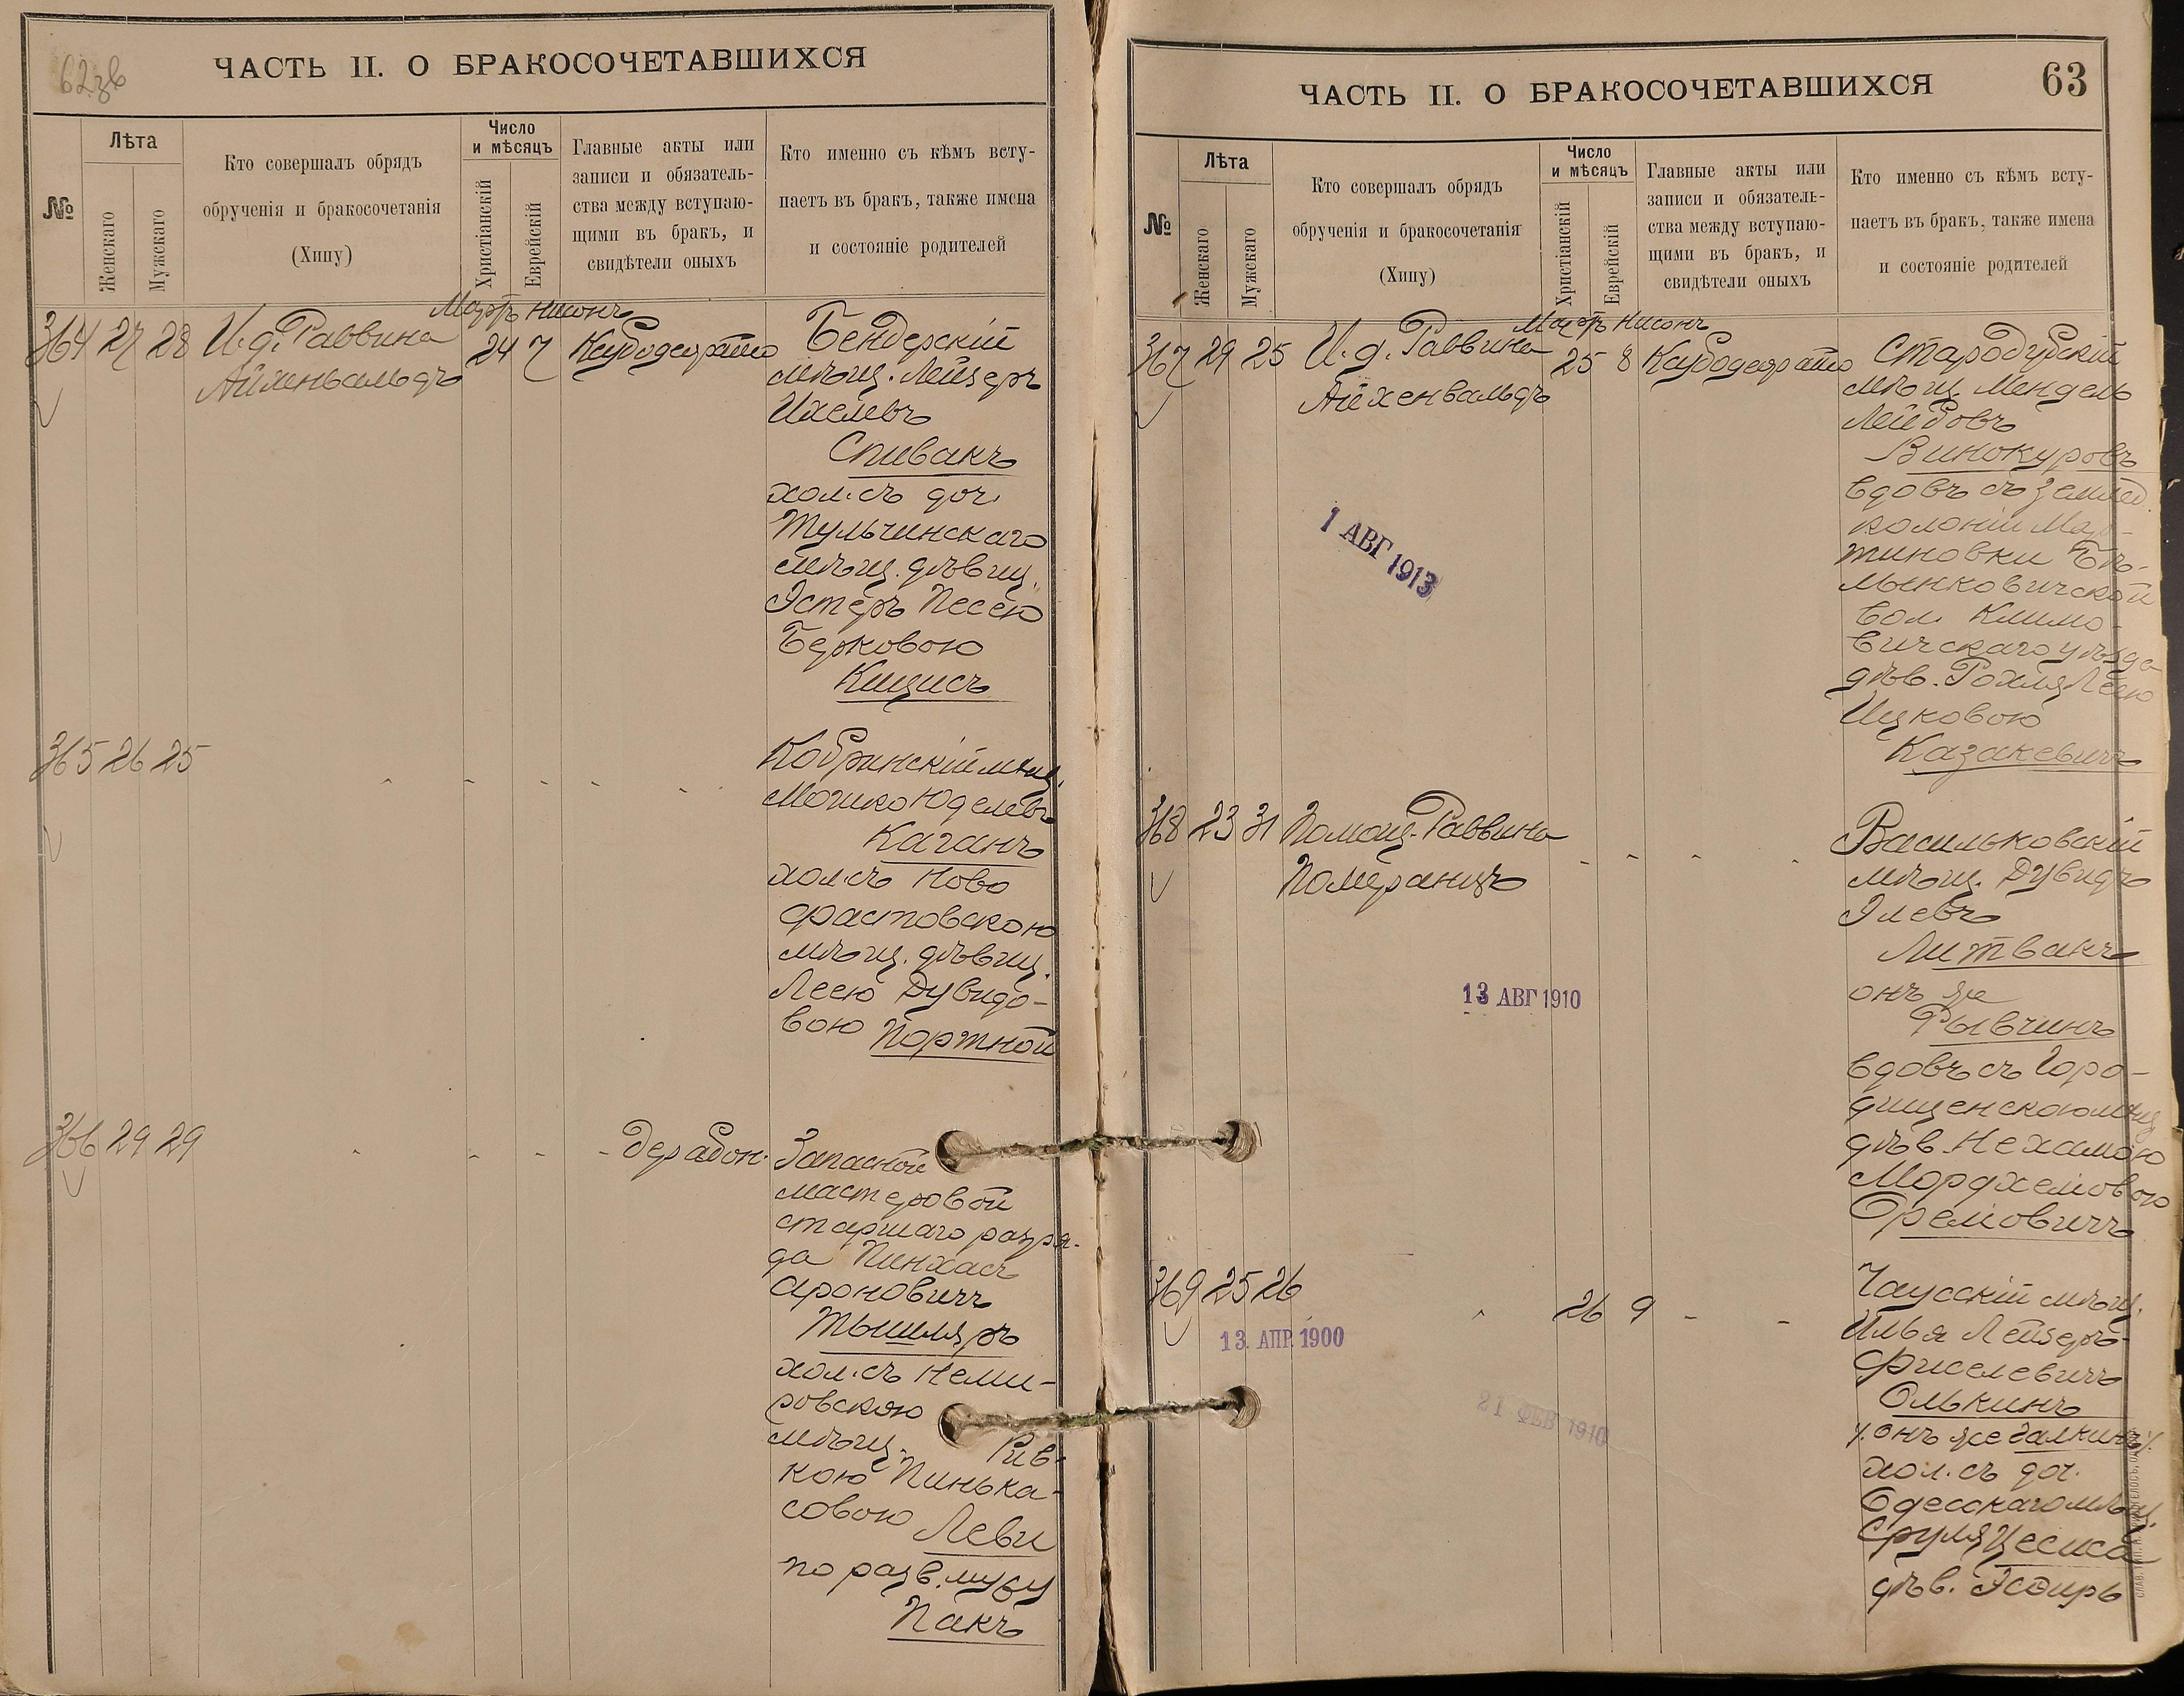 62 зв
ЧАСТЬ II. О БРАКОСОЧЕТАВШИХСЯ
№
Лѣта
Женскаго
Мужскаго
Кто совершалъ обрядъ
обрученія и бракосочетанія
(Хипу)
Число
и мѣсяцъ
Христіанскій
Еврейскій
Главные акты или
записи и обязатель-
ства между вступаю-
щими въ бракъ, и
свидѣтели оныхъ
Кто именно съ кѣмъ всту-
паетъ въ бракъ, также имена
и состояніе родителей
Мартъ Нисонъ
364 27 28 И. д. Раввина 24 7
Айхенвальдъ
Бендерскій
мѣщ. Лейзеръ
Ихелевъ
Спивакъ
хол. съ доч.
Тульчинскаго
мѣщ. дѣвиц.
Эстеръ Песею
Берковою
Кицисъ
365 26 25
Кобринскій мѣщ.
Мошко Юделевъ
Каганъ
хол. съ Ново
фастовскою
мѣщ. дѣвиц.
Леею Дувидо-
вою Портной
366 29 29
Запасной
мастеровой
старшаго разря-
да Пинхасъ
Ароновичъ
Тышляръ
хол. съ Неми-
ровскою
мѣщ. Рив-
кою Пинька-
совою Леви
по разв. мужу
Пакъ
ЧАСТЬ II. О БРАКОСОЧЕТАВШИХСЯ
63
№
Лѣта
Женскаго
Мужскаго
Кто совершалъ обрядъ
обрученія и бракосочетанія
(Хипу)
Число
и мѣсяцъ
Христіанскій
Еврейскій
Главные акты или
записи и обязатель-
ства между вступаю-
щими въ бракъ, и
свидѣтели оныхъ
Кто именно съ кѣмъ всту-
паетъ въ бракъ, также имена
и состояніе родителей
Мартъ Нисонъ
367 29 25 И. д. Раввина 25 8
Айхенвальдъ
1 АВГ 1913
Стародубскій
мѣщ. Мендель
Лейбовъ
Винокуровъ
вдовъ съ землед.
колоніи Мар-
тиновки
вол. Климо-
вичскаго уѣзда
дѣв. Рохля Леею
Ицковою
Казакевичъ
368 23 31 Помощ. Раввина
Померанцъ
13 АВГ 1910
Васильковскій
мѣщ. Дувидъ
Элевъ
Литвакъ
онъ же
Рывчинъ
вдовъ съ Горо-
дищенскою мѣщ.
дѣв. Нехамою
Мордхеловою
369 25 26 26 9
13. АПР. 1900
21 ФЕВ 1910
Чаусскій мѣщ.
Илья Лейзеръ
Фиселевичъ
Олькинъ
/. онъ же Галкинъ /.
хол. съ доч.
Одесскаго мѣщ.
Сруля
дѣв. Эсѳирь